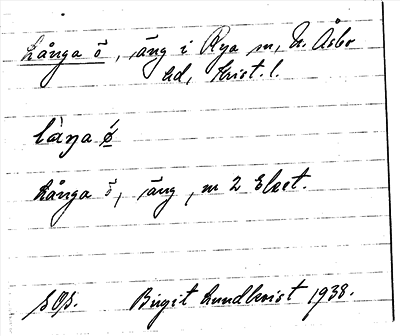 Långa ö, äng i Rya sn, N. Åsbo
hd, Krist. l.
làŋa ø̷
Långa ö, äng, nr 2 Elest.
sOp. Birgit Lundkvist 1938.